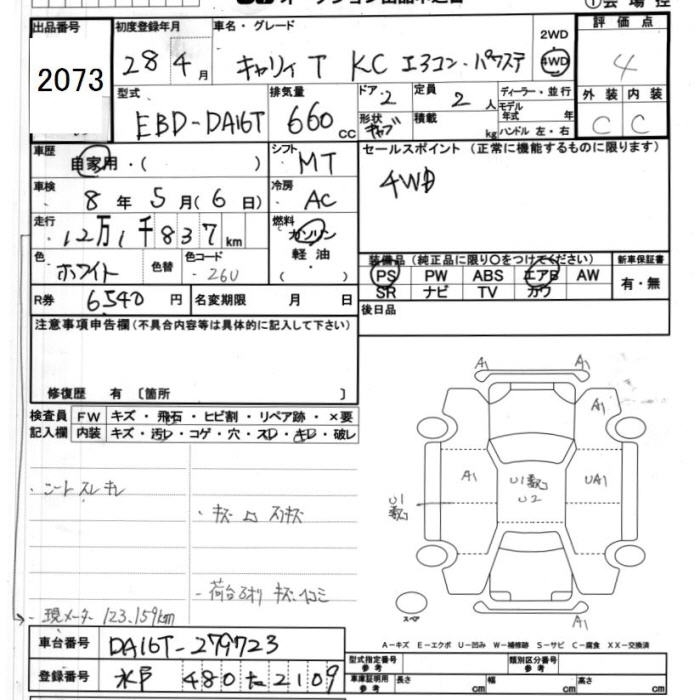 ①会場控
出品番号 初度登録年月 車名・グレード 2WD 評価点
2073 28 4月 キャリィT KC エアコン・パワステ 4WD 4
型式 排気量 ドア・2 定員 2人 ディーラー・並行 外装 内装
EBD-DA16T 660cc 形状 キャブ 積載 kg モデル年式 年 ハンドル 左・右 C C
車歴 自家用・( ) シフト MT セールスポイント (正常に機能するものに限ります)
車検 8年5月(6日) 冷房 AC 4WD
走行 12万1千837km 燃料 ガソリン
軽油
色 ホワイト 色替 色コード 26U ( )
装備品 (純正品に限り〇をつけてください) 新車保証書
PS PW ABS エアB AW 有・無
SR ナビ TV カワ
R券 6540円 名変期限 月 日 後日品
注意事項申告欄(不具合内容等は具体的に記入して下さい)
修復歴 有 〔箇所 〕
検査員 FW キズ・飛石・ヒビ割・リペア跡・×要
記入欄 内装 キズ・汚レ・コゲ・穴・スレ・キレ・破レ
・シートスレ キレ
・キズ
・現メーター 123,159km
A1 A1
A1
A1 U1数 U2 UA1
U1数
A1
スペア
A-キズ E-エクボ U-凹み W-補修跡 S-サビ C-腐食 XX-交換済
車台番号 DA16T-279723
登録番号 水戸 480 た 2109
型式指定番号 参考 類別区分番号 参考
車庫証明用 参考 長さ cm 幅 cm 高さ cm